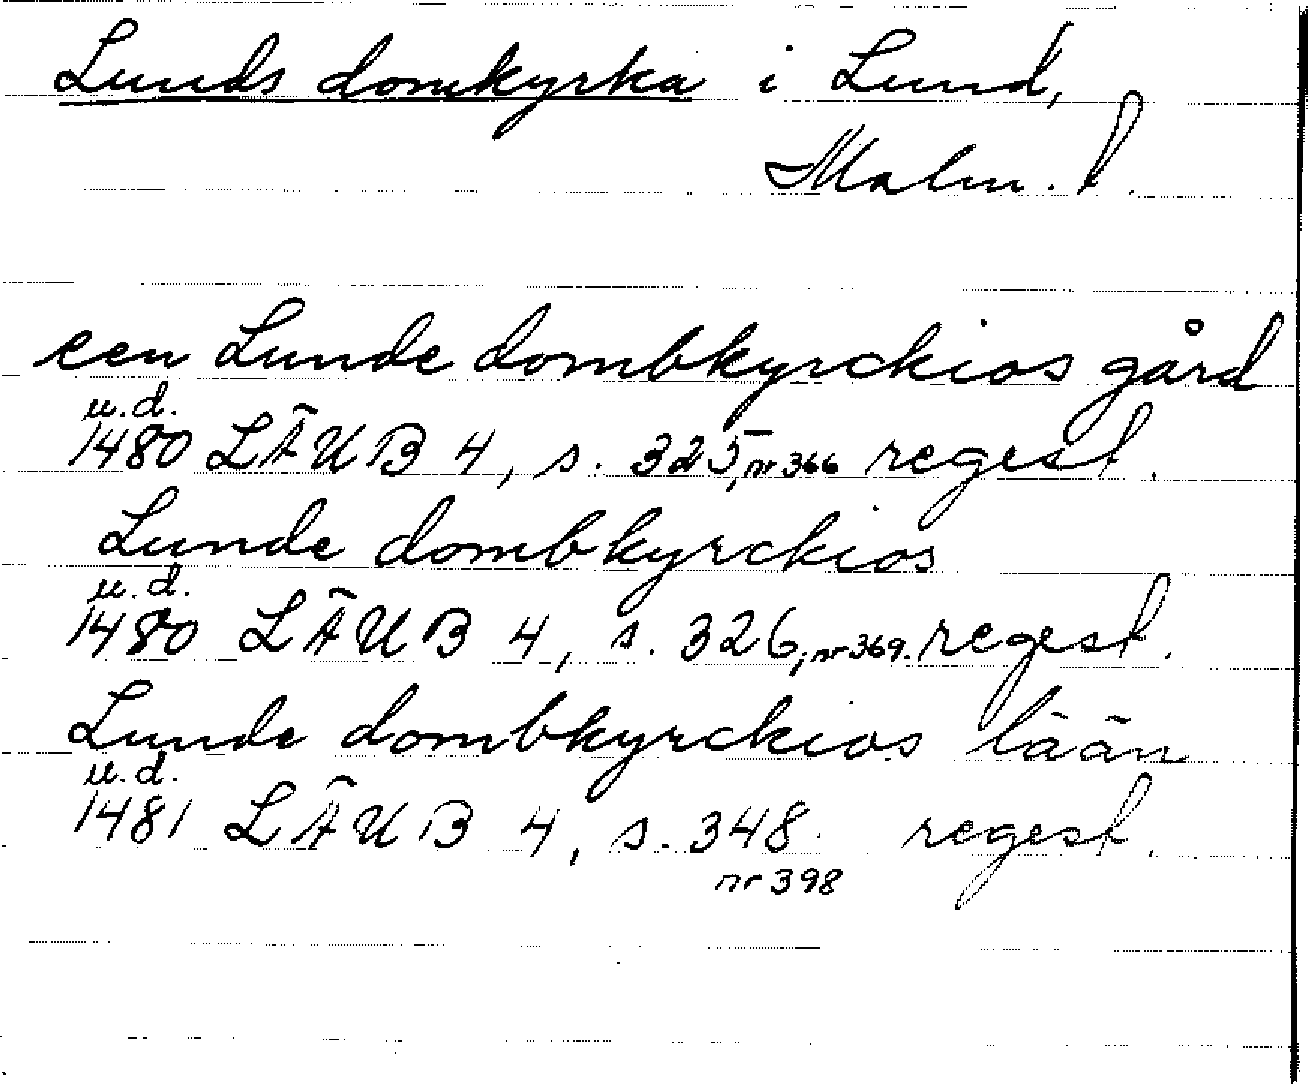 Lunds domkyrka i Lund,
Malm. l.
een Lunde dombkyrckios gård
u.d.
1480 LÄUB 4, s. 325, nr 366 regest.
Lunde dombkyrckios
u.d.
1480 LÄUB 4, s. 326, nr 369. regest.
Lunde dombkyrckios lään
u.d.
1481 LÄUB 4, s. 348 regest.
nr 398